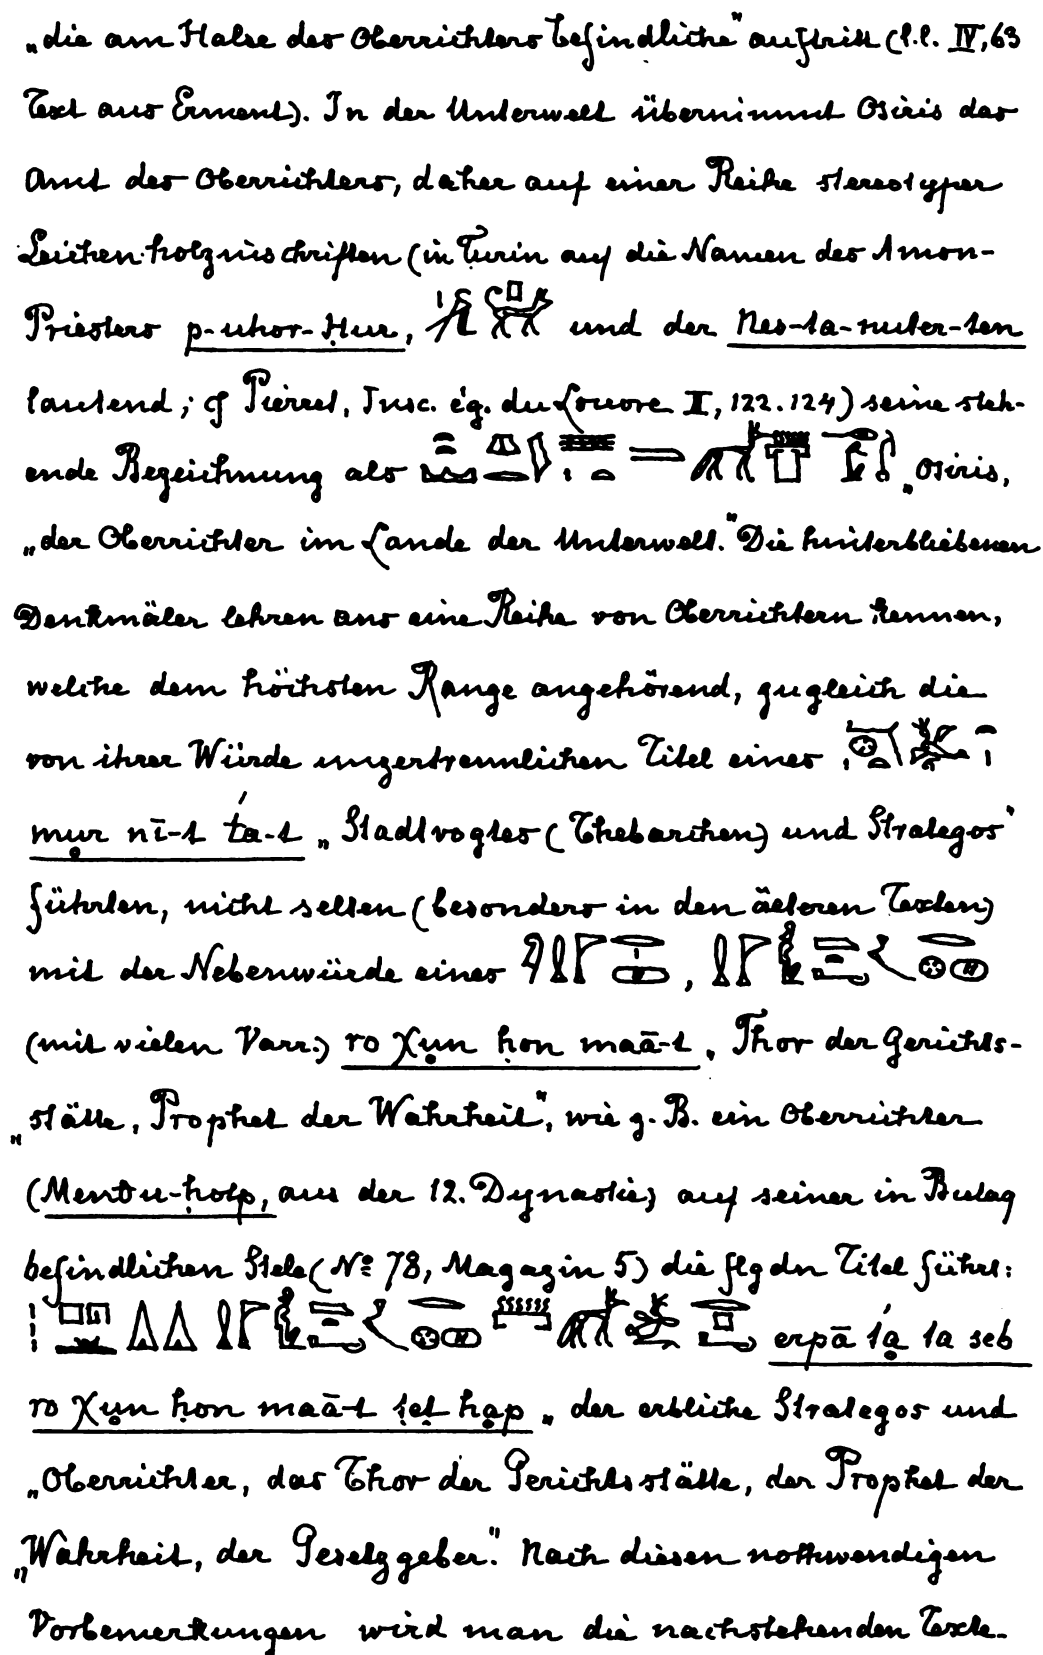 „die am Halse des Oberrichters befindliche" auftritt (l.l. IV, 63
Text aus Erment). In der Unterwelt übernimmt Osiris das
Amt des Oberrichters, daher auf einer Reihe stereotyper
Leichenholzinschriften (in Turin auf die Namen des Amon-
Priesters p-uhor-Ḥur, und der Nes-ta-nuter-ten
lautend; cf Pierret, Insc. ég. du Louvre II, 122. 124) seine steh-
ende Bezeichnung als „Osiris,
„der Oberrichter im Lande der Unterwelt." Die hinterbliebenen
Denkmäler lehren uns eine Reihe von Oberrichtern kennen,
welche dem höchsten Range angehörend, zugleich die
von ihrer Würde unzertrennlichen Titel eines
mur nī-t ta-t „Stadtvogtes (Thebarchen) und Strategos"
führten, nicht selten (besonders in den älteren Texten)
mit der Nebenwürde eines ,
(mit vielen Varr.) ro χun ḥon maā-t „Thor der Gerichts-
„stätte, Prophet der Wahrheit", wie z. B. ein Oberrichter
(Mentu-ḥotp, aus der 12. Dynastie) auf seiner in Bulaq
befindlichen Stele (No 78, Magazin 5) die flgdn Titel führt:
erpā ta ta seb
ro χun ḥon maā-t ṭeṭ hap „der erbliche Strategos und
„Oberrichter, das Thor der Gerichtsstätte, der Prophet der
„Wahrheit, der Gesetzgeber." Nach diesen nothwendigen
Vorbemerkungen wird man die nachstehenden Texte